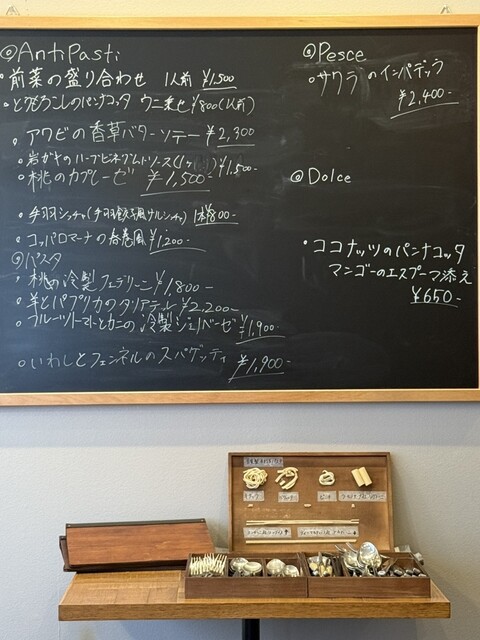 ◎AntiPasti
・前菜の盛り合わせ 1人前 ¥1,500
・とうもろこしのパンナコッタ ウニ乗せ ¥800(1人前)
・アワビの香草バターソテー ¥2,300
・岩ガキのハーブビネグレットソース(1ヶ) ¥1,500-
・桃のカプレーゼ ¥1,500-
・手羽シッチャ(手羽餃子風サルシッチャ) 1本¥800-
・コッパロマーナの春巻風 ¥1,200-
◎パスタ
・桃の冷製フェデリーニ ¥1,800-
・羊とパプリカのタリアテッレ ¥2,200-
・フルーツトマトとカニの冷製ジェノベーゼ ¥1,900-
・いわしとフェンネルのスパゲッティ ¥1,900-
◎Pesce
・サワラのインパデッラ
¥2,400-
◎Dolce
・ココナッツのパンナコッタ
マンゴーのエスプーマ添え
¥650-